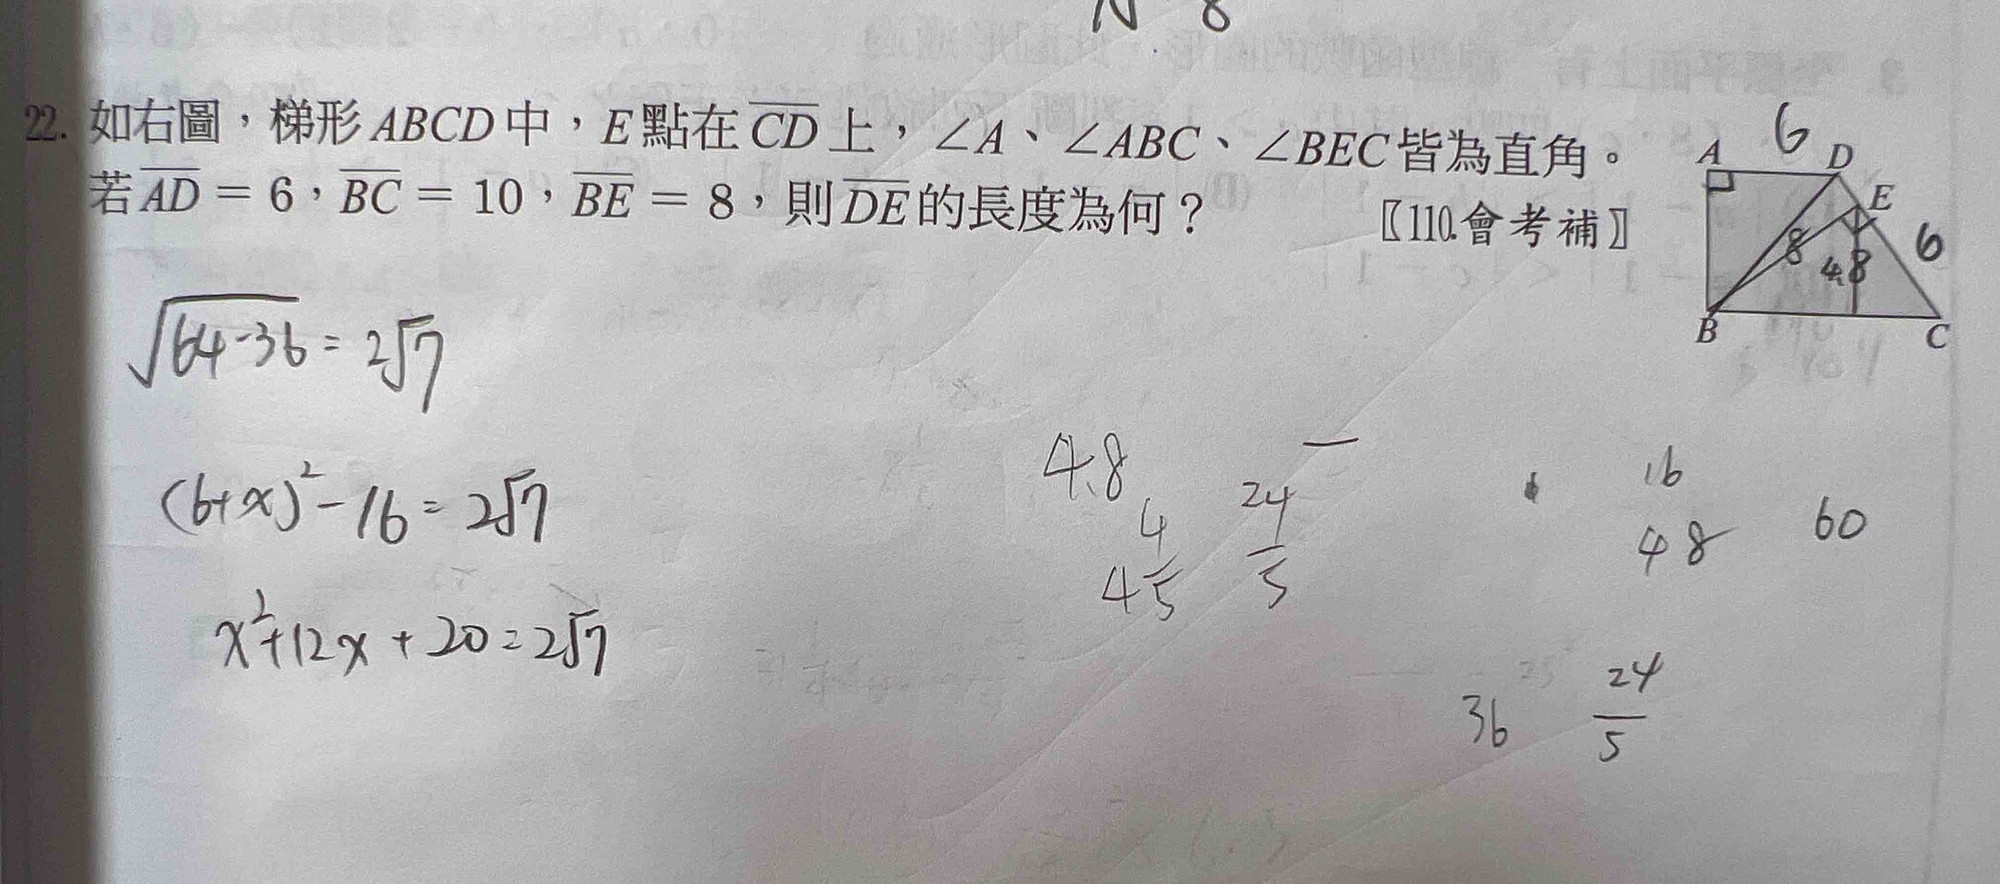 N 8
22. 如右圖，梯形ABCD中，E點在CD上，∠A、∠ABC、∠BEC皆為直角。
若AD = 6，BC = 10，BE = 8，則DE的長度為何？
〖110.會考補〗
6
A D
E
8 4.8 6
B C
√64-36 = 2√7
(6+x)² - 16 = 2√7
x² + 12x + 20 = 2√7
4.8
4 4/5
24/5
16
48
60
36
24/5